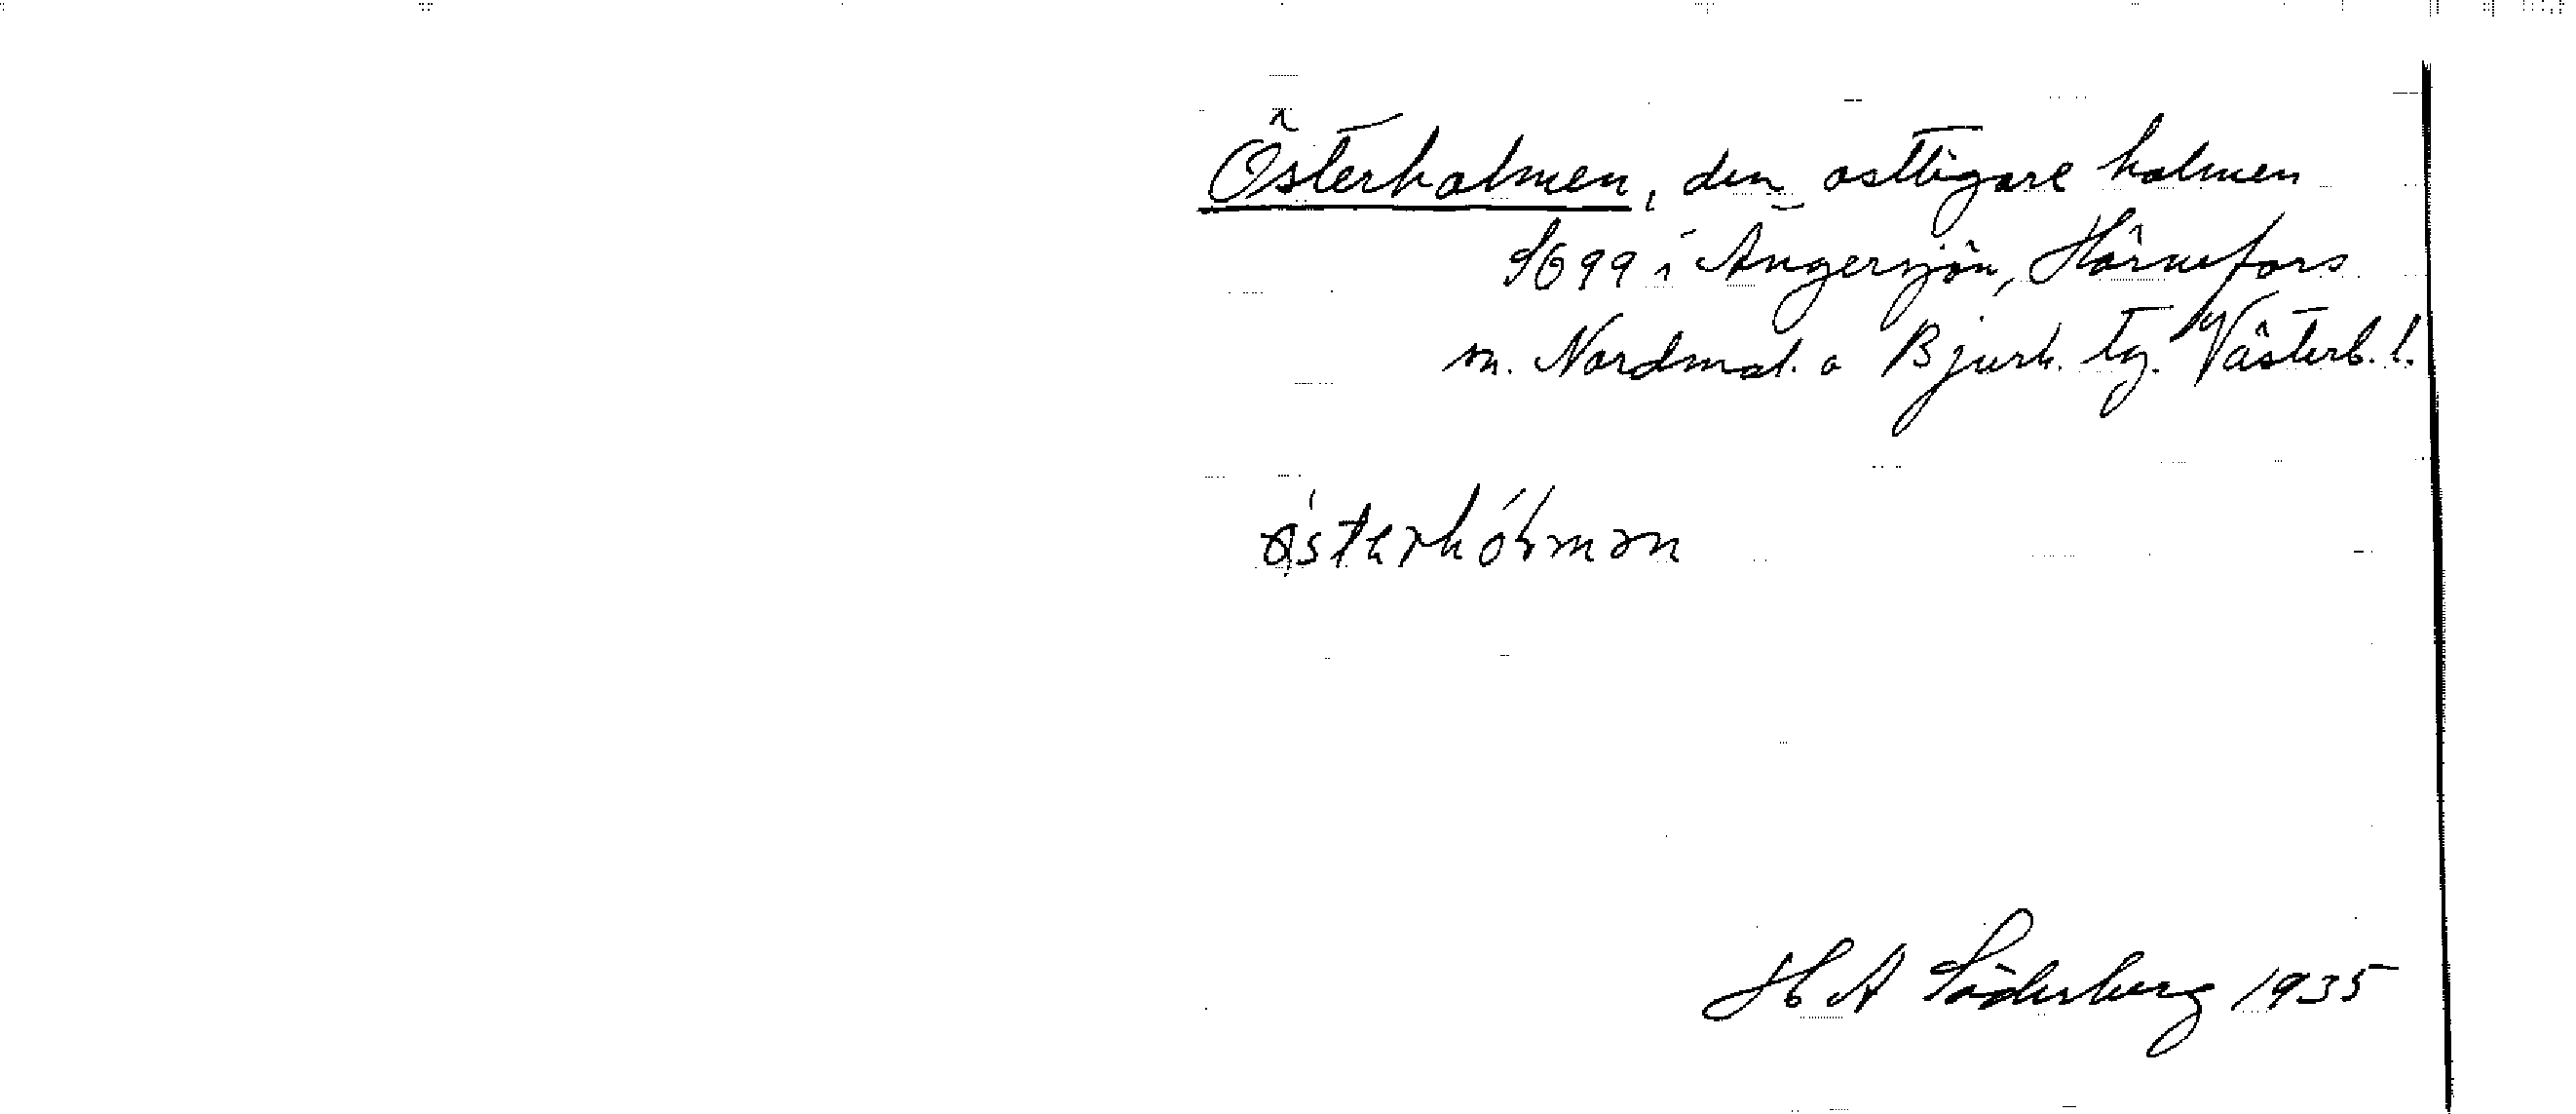 Österholmen, den ostligare holmen
S699 i Ångersjön, Hörnefors
sn. Nordmal. o Bjurh. tg. Västerb. l.
H A Söderberg 1935